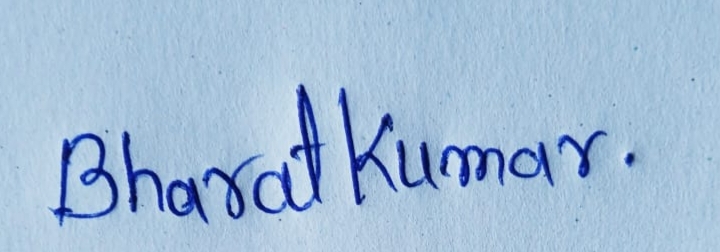 Bharat Kumar.